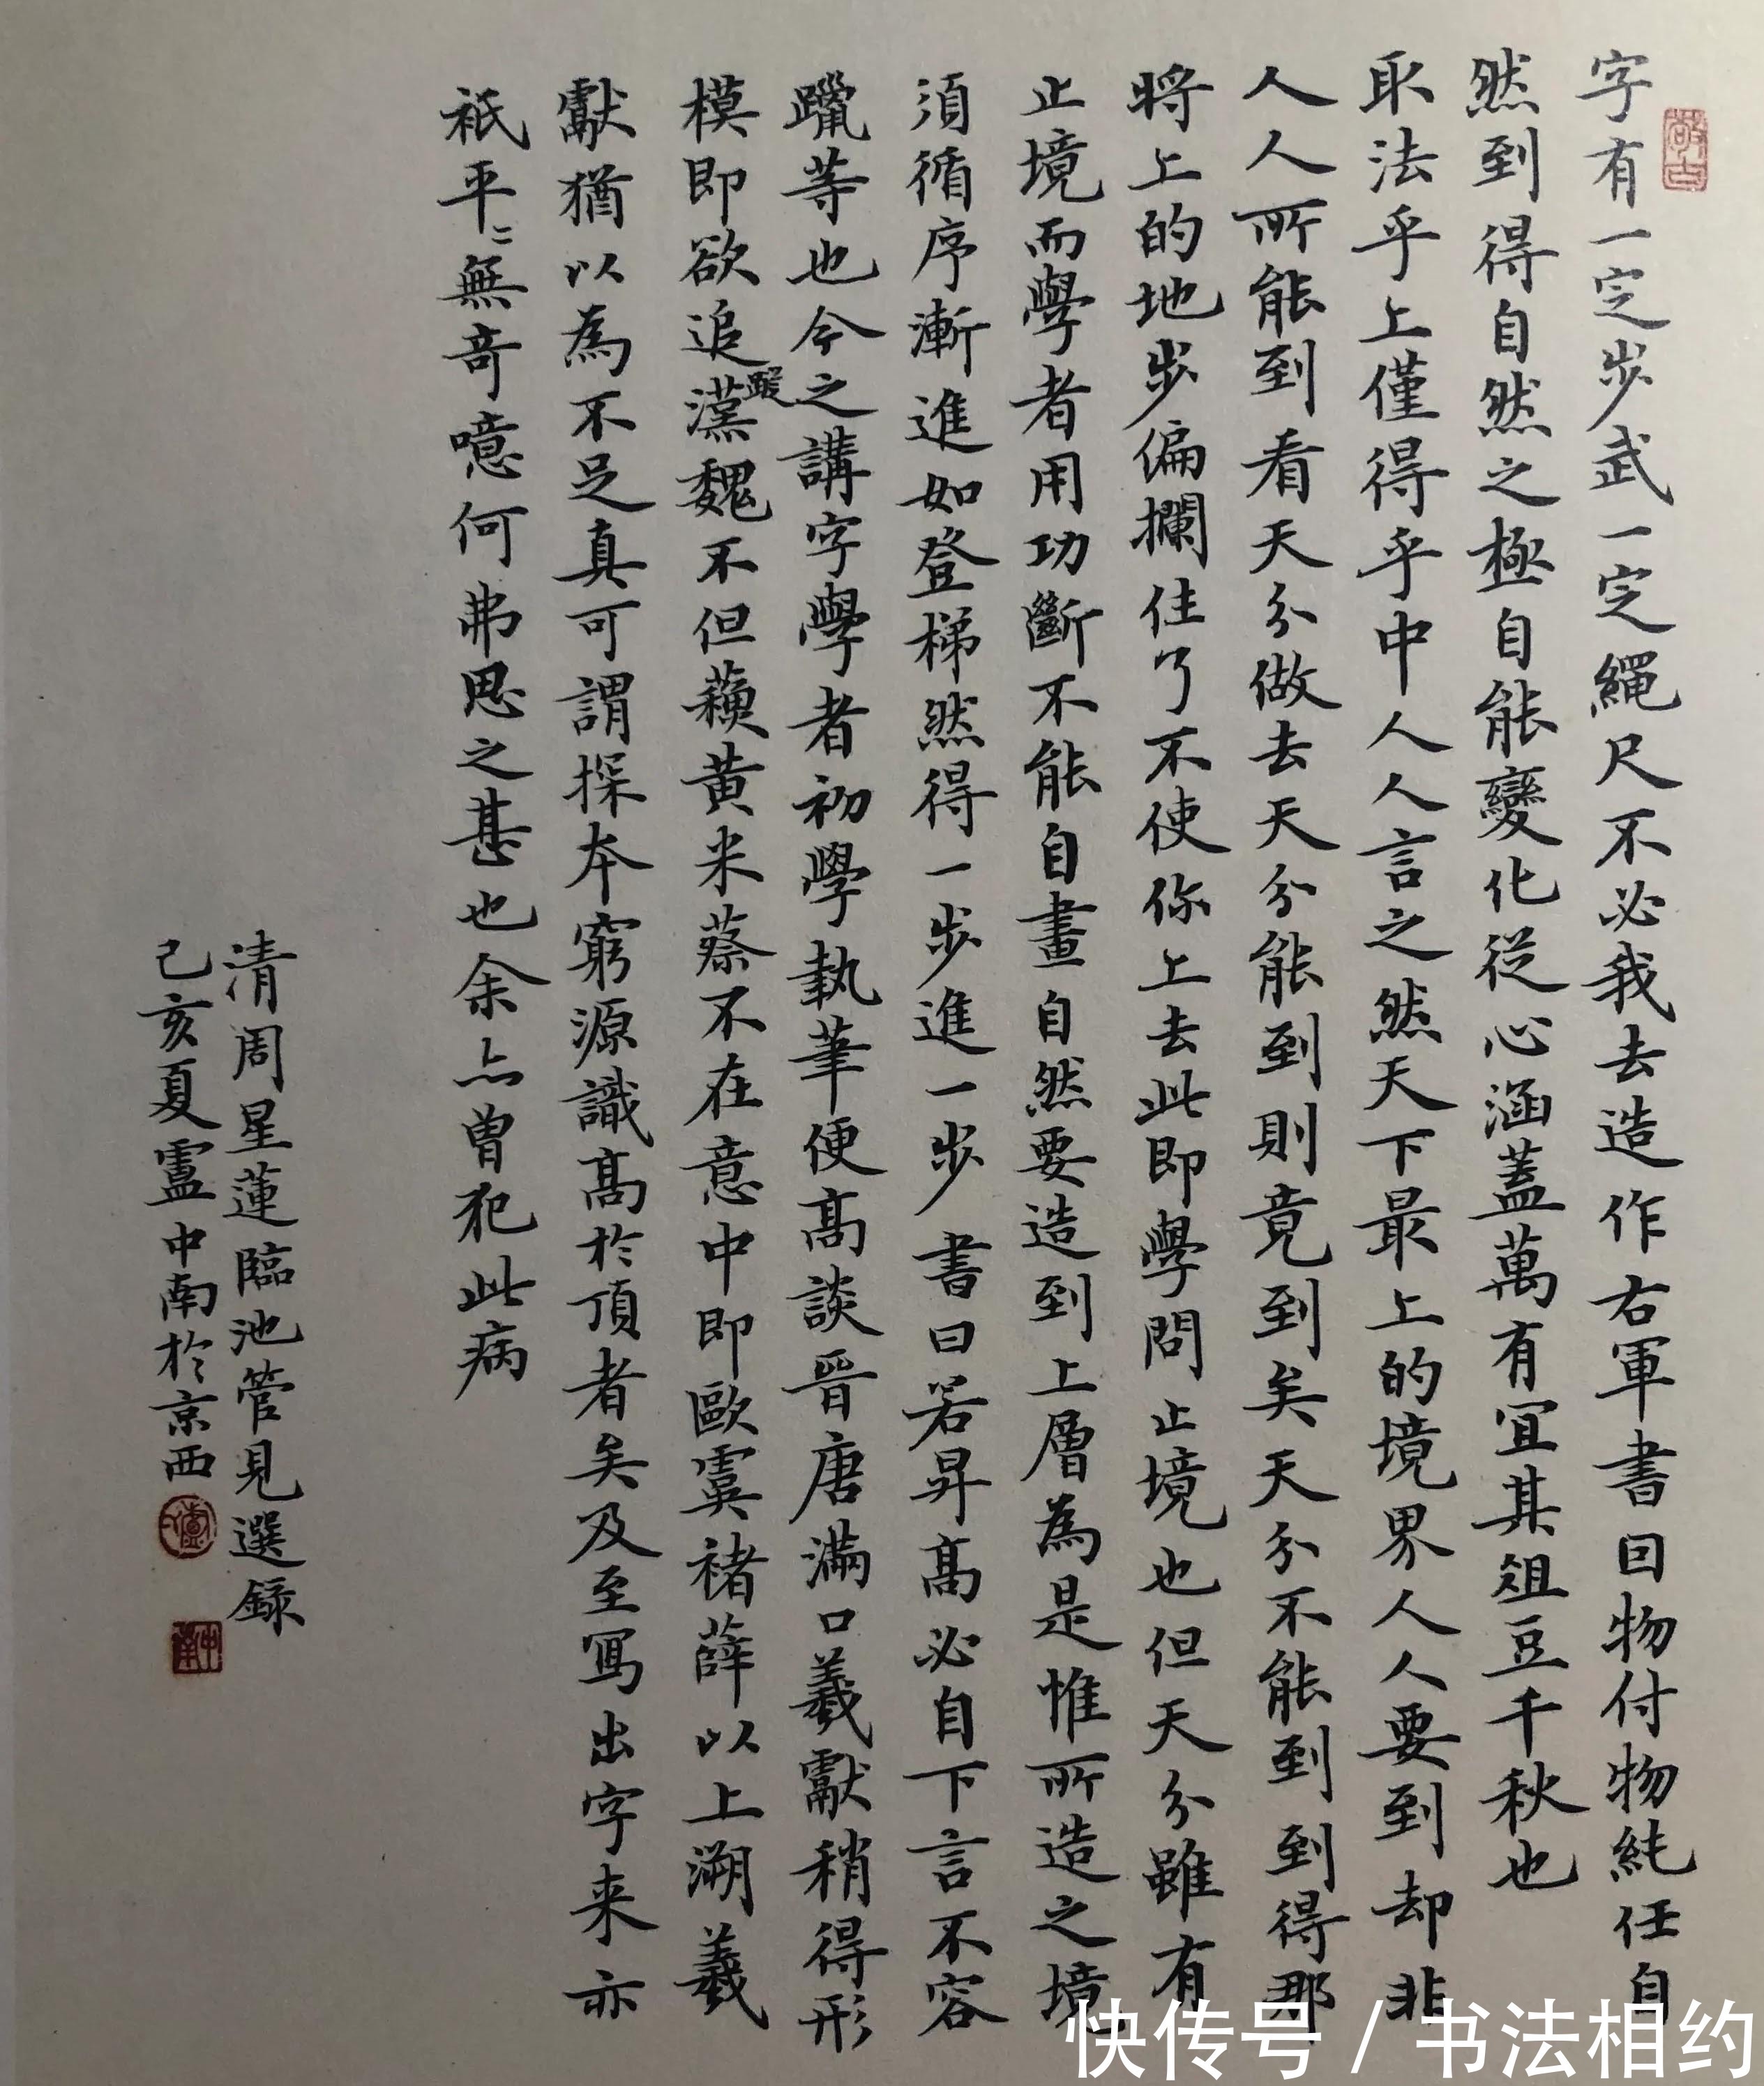 字有一定步武一定繩尺不必我去造作右軍書因物付物純任自
然到得自然之極自能變化從心涵蓋萬有宜其俎豆千秋也
取法乎上僅得乎中人人言之然天下最上的境界人人要到却非
人人所能到看天分做去天分能到則竟到矣天分不能到到得那
將上的地步偏攔住了不使你上去此即學問止境也但天分雖有
止境而學者用功斷不能自畫自然要造到上層為是惟所造之境
須循序漸進如登梯然得一步進一步書曰若昇高必自下言不容
躐等也今之講字學者初學執筆便高談晉唐滿口羲獻稍得形
模即欲追踨漢魏不但蘇黃米蔡不在意中即歐虞褚薛以上溯羲
獻猶以為不足真可謂探本窮源識高於頂者矣及至寫出字来亦
祇平二無奇噫何弗思之甚也余亦曾犯此病
清周星蓮臨池管見選録
己亥夏盧中南於京西
盧
中南
快传号 / 书法相约